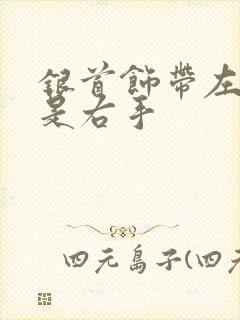 銀首飾帶左
是右手
四元島子(四元